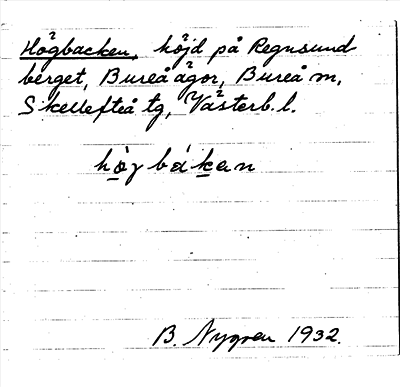 Högbacken, höjd på Regnsund
berget, Bureå ägor, Bureå m,
Skellefteå tg, Västerb. l.
B. Nygren 1932.